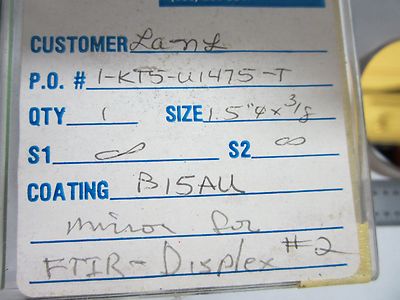 CUSTOMER La-nL
P.O. # 1-KT5-U1475-T
QTY 1 SIZE 1.5"φ x 3/8
S1 ∞ S2 ∞
COATING B15AU
mirror for
FTIR-Displex #2